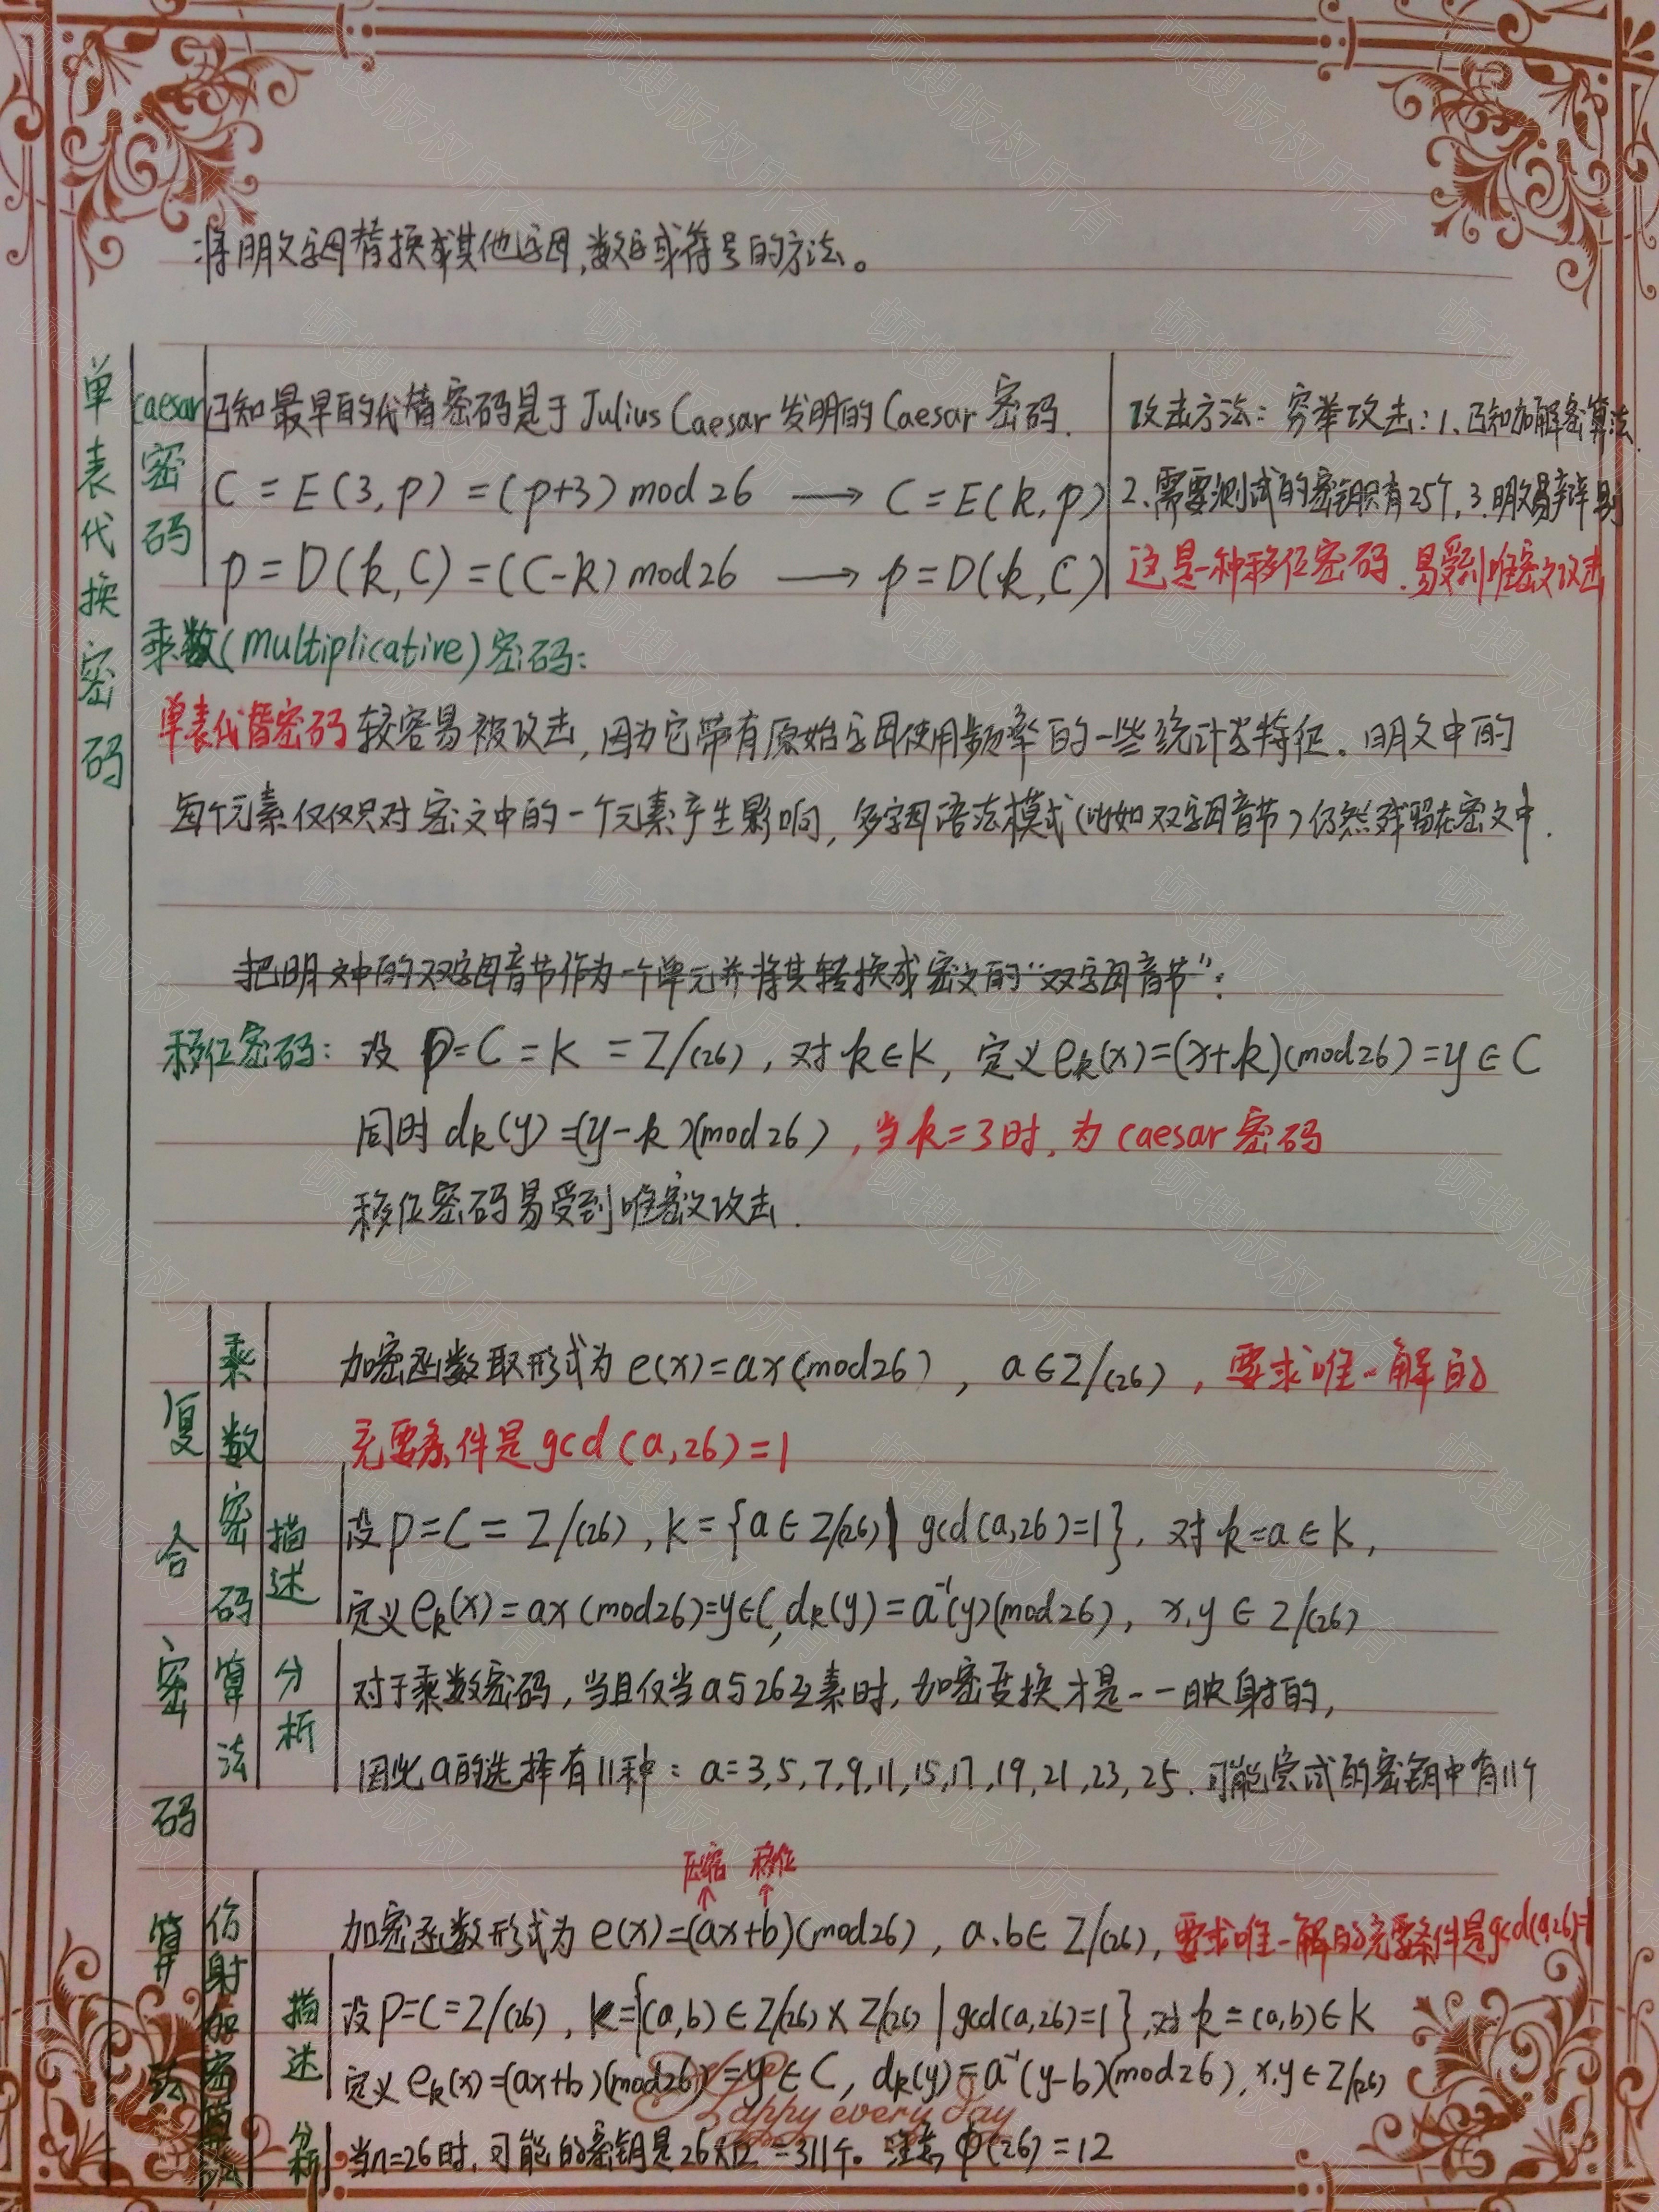 :将明文字母替换成其他字母,数字或符号的方法。
单表代换密码
Caesar密码
已知最早的代替密码是于Julius Caesar发明的Caesar密码.
C = E(3,p) = (p+3) mod 26 → C = E(k,p)
p = D(k,C) = (C-k) mod 26 → p = D(k,C)
攻击方法: 穷举攻击: 1、已知加解密算法.
2、需要测试的密钥只有25个, 3、明文易辨别
这是一种移位密码.易受到唯密文攻击
乘数(multiplicative)密码:
单表代替密码较容易被攻击,因为它带有原始字母使用频率的一些统计学特征。明文中的
每个元素仅仅只对密文中的一个元素产生影响,多字母语法模式(比如双字母音节)仍然残留在密文中.
把明文中的双字母音节作为一个单元并将其转换成密文的“双字母音节”:
移位密码: 设 P=C=K=Z/(26), 对k∈K, 定义e_k(x)=(x+k)(mod26)=y∈C
同时 d_k(y)=(y-k)(mod26), 当k=3时, 为caesar密码
移位密码易受到唯密文攻击.
复合密码算法
乘数密码算法
加密函数取形式为 e(x)=ax(mod26), a∈Z/(26), 要求唯一解的
充要条件是 gcd(a,26)=1
描述
设P=C=Z/(26), K={a∈Z/(26)| gcd(a,26)=1}, 对k=a∈K,
定义e_k(x)=ax(mod26)=y∈C, d_k(y)=a⁻¹(y)(mod26), x,y∈Z/(26)
分析
对于乘数密码, 当且仅当a与26互素时, 加密变换才是一一映射的,
因此a的选择有11种: a=3,5,7,9,11,15,17,19,21,23,25. 可能尝试的密钥中有11个
压缩 移位
↑ ↑
仿射加密
加密函数形式为 e(x)=(ax+b)(mod26), a、b∈Z/(26), 要求唯一解的充要条件是gcd(a,26)=1
描述
设P=C=Z/(26), K={(a,b)∈Z/(26)×Z/(26)|gcd(a,26)=1},对k=(a,b)∈K
定义e_k(x)=(ax+b)(mod26)=y∈C, d_k(y)=a⁻¹(y-b)(mod26), x,y∈Z/(26)
Happy every day
分析
当n=26时, 可能的密钥是26×12=311个。注意φ(26)=12
顿搜版权所有